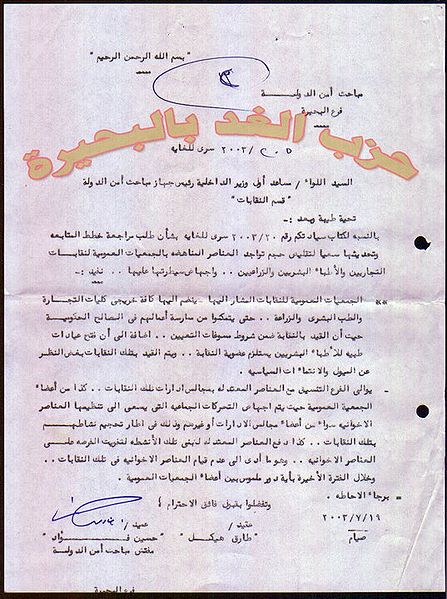 " بسم الله الرحمن الرحيم "
مباحث أمن الدولـــــة
فرع البحيرة
حزب الغد بالبحيرة
٢٠٠٣/ سرى للغايه
السيد اللواء / مساعد أول وزير الداخلية رئيس جهاز مباحث أمن الدولة
" قسم النقابات "
تحية طيبة وبعد :-
بالنسبه لكتاب سيادتكم رقم ٢٠٠٣/٢٠ سرى للغايه بشأن طلب مراجعة خطط المتابعه
وتحديثها سعيا لتقليص حجم تواجد العناصر المناهضه بالجمعيات العمومية لنقابات
التجاريين والأطباء البشريين والزراعيين .. واجهاض سيطرتها عليها .. نفيد :-
** الجمعيات العمومية للنقابات المشار اليها .. ينضم اليها كافة خريجى كليات التجـارة
والطب البشرى والزراعة .. حتى يتمكنوا من ممارسة أعمالهم فى المصالح الحكومية
حيث أن القيد بالنقابة ضمن شروط مسوغات التعيين .. اضافة الى أن فتح عيادات
طبيه للأطباء البشريين يستلزم عضوية النقابة .. ويتم القيد بتلك النقابات بغض النظر
عن الميول والانتماءات السياسيه .
- يوالى الفرع التنسيق مع العناصر المعتدله بمجالس ادارات تلك النقابات .. وكذا من أعضاء
الجمعية العمومية حيث يتم اجهاض التحركات الجماعيه التى يسعى الى تنظيمها العناصر
الاخوانيه سواء من أعضاء مجالس الادارات أو غيرهم وذلك فى اطار تحجيم نشاطهم
بتلك النقابات .. كذا دفع العناصر المعتدله لتبنى تلك الأنشطه لتفويت الفرصه علـــى
العناصر الاخوانيه .. وهو ما أدى الى عدم قيام العناصر الاخوانيه فى تلك النقابات ..
وخلال الفترة الأخيره بأية دور ملموس بين أعضاء الجمعيات العمومية .
* برجاء الاحاطه .
وتفضلوا بقبول فائق الاحترام ؛
٢٠٠٣/٧/١٩
صيام
عقيد /
" طارق هيكـــل "
عميد /
" حسين فــــؤاد "
مفتش مباحث أمن الدولـة
فرع البحيرة